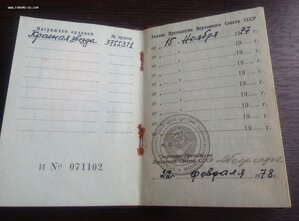 www.rumas-su.com
Награжден орденом
№ ордена
Красная звезда
3751371
И № 071102
Указом Президиума Верховного Совета СССР
от 15 ноября 1977
от 19 г.
от 19 г.
от 19 г.
от 19 г.
от 19 г.
от 19 г.
от 19 г.
Секретарь Президиума
Верховного Совета СССР
22 февраля 1978 г.